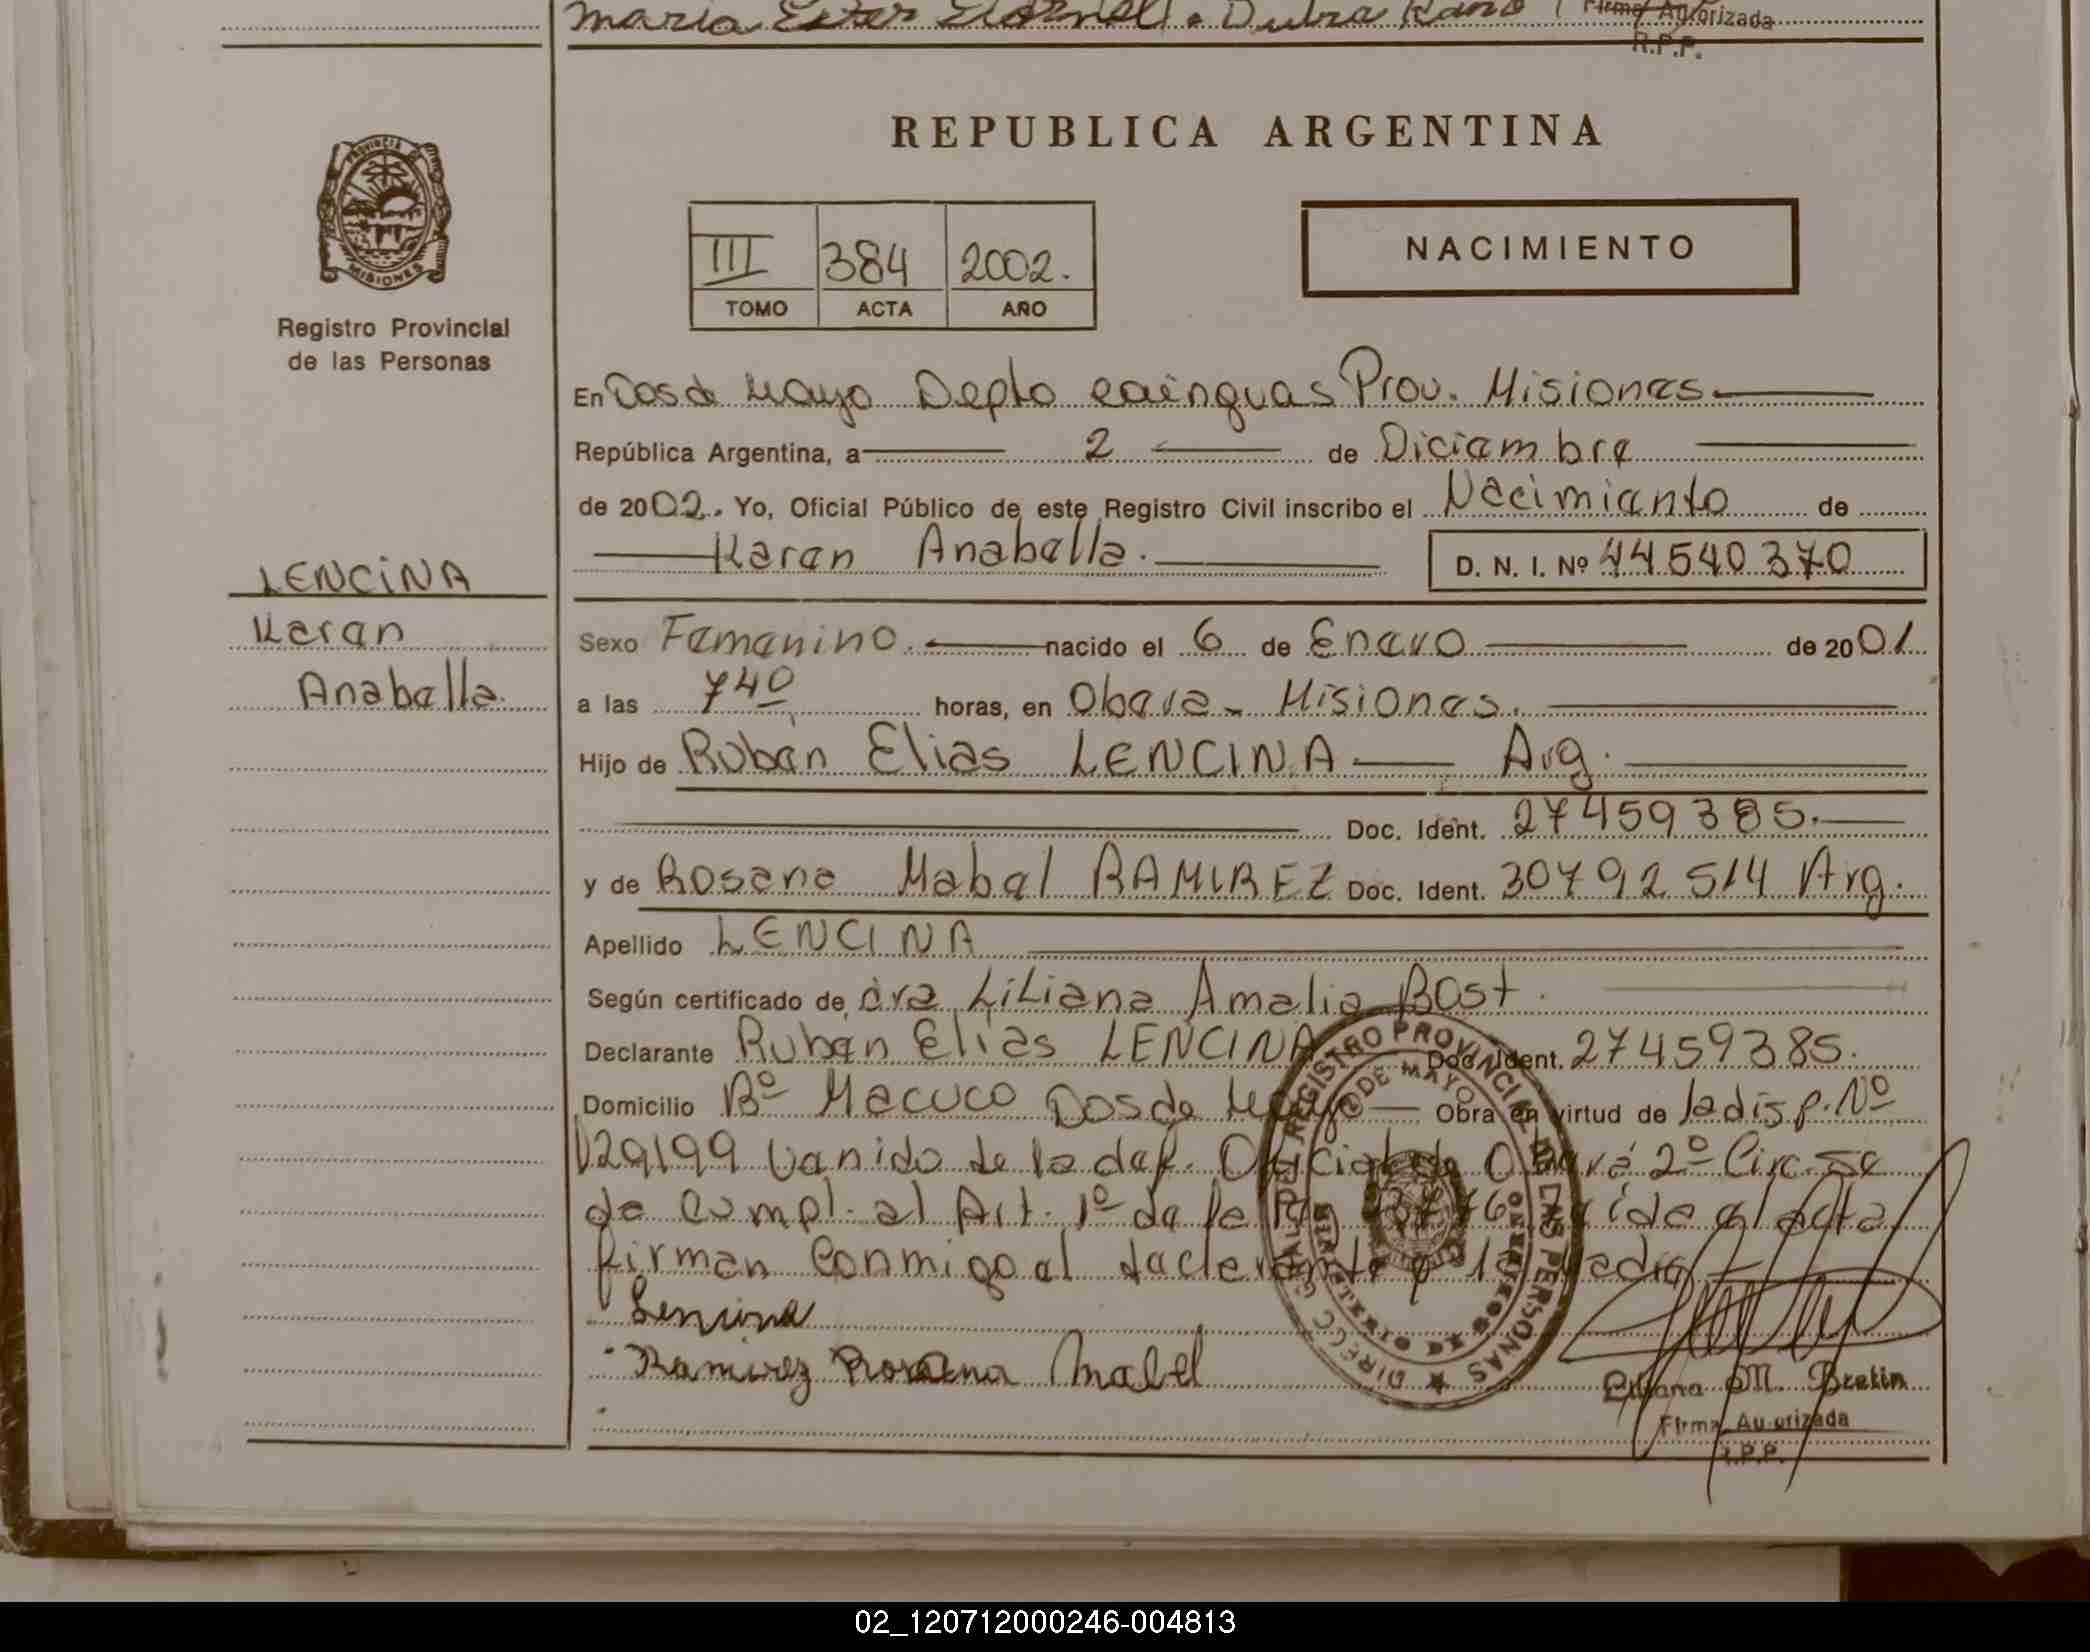 Maria Ester
Firma Autorizada
R.P.P.
PROVINCIA DE
MISIONES
Registro Provincial
de las Personas
REPUBLICA ARGENTINA
III 384 2002.
TOMO ACTA AÑO
NACIMIENTO
En Dos de Mayo Depto Cainguas Prov. Misiones
República Argentina, a 2 de Diciembre
de 2002. Yo, Oficial Público de este Registro Civil inscribo el Nacimiento de
Karen Anabella. D. N. I. Nº 44540370
LENCINA
Karen
Anabella.
Sexo Femenino. nacido el 6 de Enero de 2001
a las 740 horas, en Obera - Misiones.
Hijo de Rubén Elias LENCINA Arg.
Doc. Ident. 27459385.
y de Rosana Mabel RAMIREZ Doc. Ident. 30792514 Arg.
Apellido LENCINA
Según certificado de dra Liliana Amalia Bost.
Declarante Rubén Elias LENCINA Doc. Ident. 27459385.
Domicilio Bº Macuco Dos de Mayo Obra en virtud de la disp. Nº
129199 venido de la def. Oficial de Oberá 2º Circ. se
da cumpl. al Art. 1º de la leída el acta
firman conmigo el declarante y la madre
Lencina
Ramirez Rosana Mabel
DIRECC. GRAL. DEL REGISTRO PROVINCIAL DE LAS PERSONAS
2 DE MAYO
Liliana M. Bretin
Firma Autorizada
R.P.P.
02_120712000246-004813